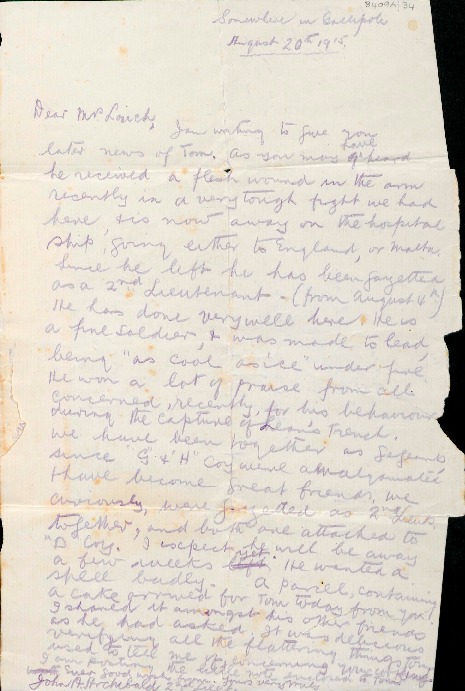 8409A/34
Somewhere in Gallipoli
August 20th 1915.
Dear Mrs Louch,
I am writing to give you
later news of Tom. As you may have heard
he received a flesh wound in the arm
recently in a very tough fight we had
here & is now away on the hospital
ship, going either to England, or Malta.
Since he left he has been gazetted
as a 2nd Lieutenant - (from August 4th)
He has done very well here. He is
a fine soldier, & was made to lead,
being "as cool as ice" under fire.
He won a lot of praise from all
concerned, recently, for his behaviour
during the capture of Leane's Trench.
We have been together as Sergeants
since "G" & "H" Coy were amalgamated
& have become great friends, we
curiously, were gazetted as 2nd Lieuts
together, and both are attached to
"D" Coy. I expect he will be away
a few weeks yet. He wanted a
spell badly. A parcel, containing
a cake arrived for Tom today from you,
I shared it amongst his other friends
as he had asked. It was delicious
verifying all the flattering things Tom
used to tell me concerning your
I am posting the little note enclosed to Tom
John H. Archibald 2nd Lieut